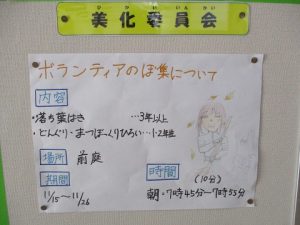 びかいいんかい
美化委員会
ボランティアのぼ集について
内容
・落ち葉はき …3年以上
・どんぐり・まつぼっくりひろい…1・2年生
場所 前庭
期間 時間
(10分)
11/15～11/26 朝・7時45分～7時55分